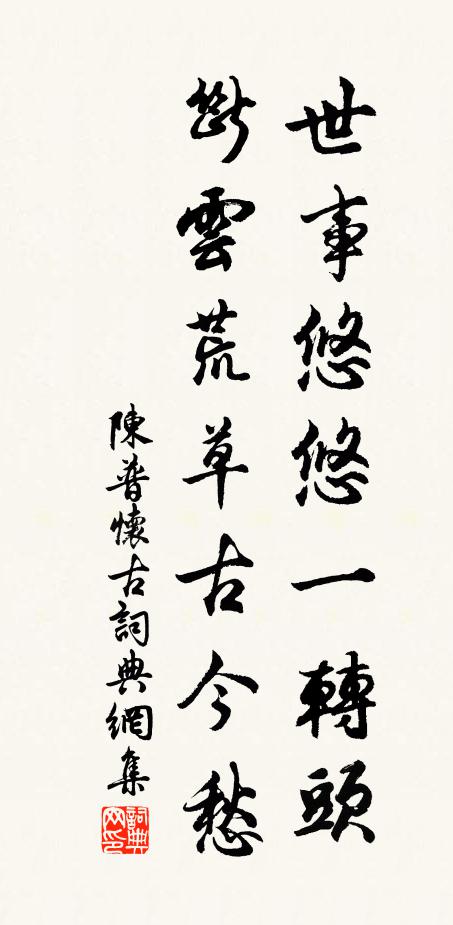 世事悠悠一轉頭
斷雲荒草古今愁
陳普懷古詞典網集
詞典網印